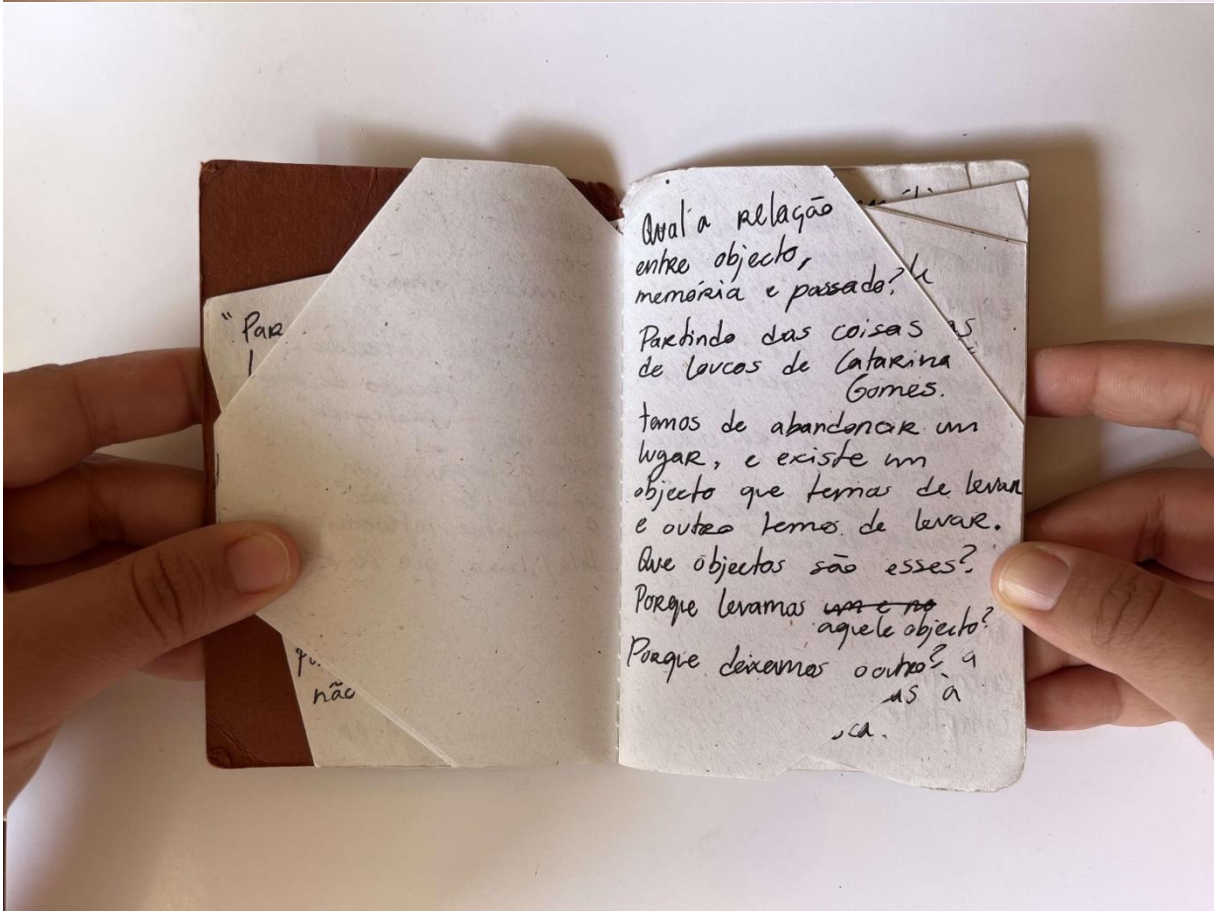 " Par
qu
não
Qual a relação
entre objecto,
memória e passado?
Partindo das coisas
de loucos de Catarina
Gomes.
temos de abandonar um
lugar, e existe um
objecto que temos de levar
e outro temos de levar.
Que objectos são esses?
Porque levamos um e no
aquele objecto?
Porque deixamos o outro?
a
us à
ca.
as